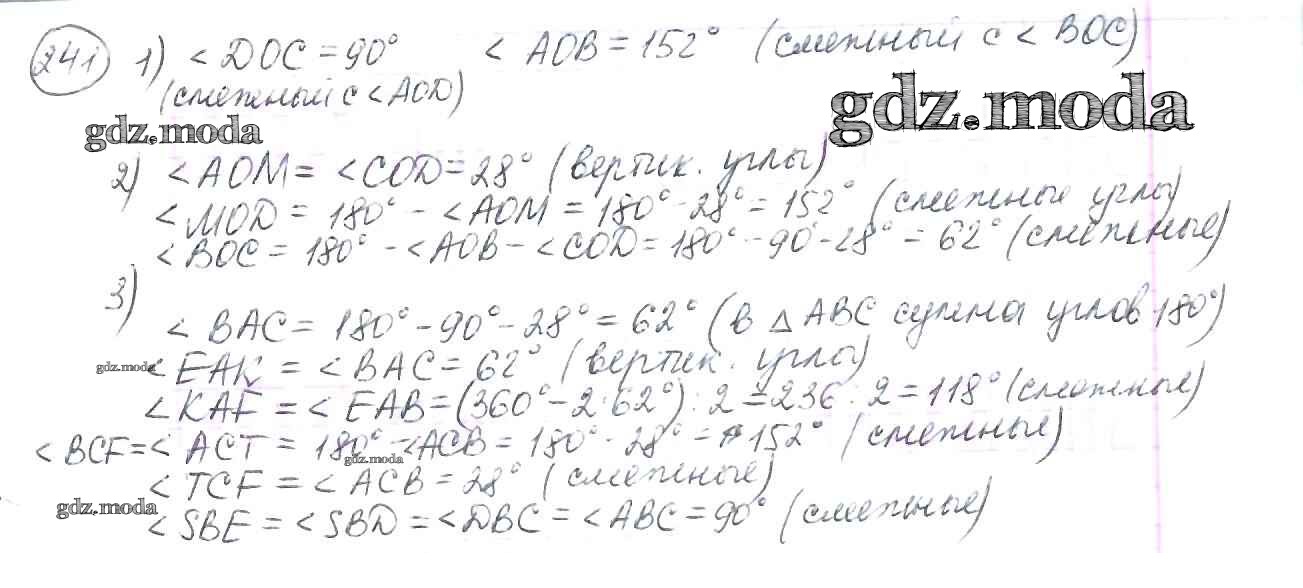 241 1) < DOC = 90° < AOB = 152° (смежный с < BOC)
(смежный с < AOD)
gdz.moda
gdz.moda
2) < AOM = < COD = 28° (вертик. углы)
< MOD = 180° - < AOM = 180° - 28° = 152° (смежные углы)
< BOC = 180° - < AOB - < COD = 180° - 90° - 28° = 62° (смежные)
3)
< BAC = 180° - 90° - 28° = 62° (в △ ABC сумма углов 180°)
gdz.moda
< EAK = < BAC = 62° (вертик. углы)
< KAF = < EAB = (360° - 2·62°) : 2 = 236 : 2 = 118° (смежные)
< BCF = < ACT = 180° - < ACB = 180° - 28° = 152° (смежные)
gdz.moda
< TCF = < ACB = 28° (смежные)
gdz.moda
< SBE = < SBD = < DBC = < ABC = 90° (смежные)